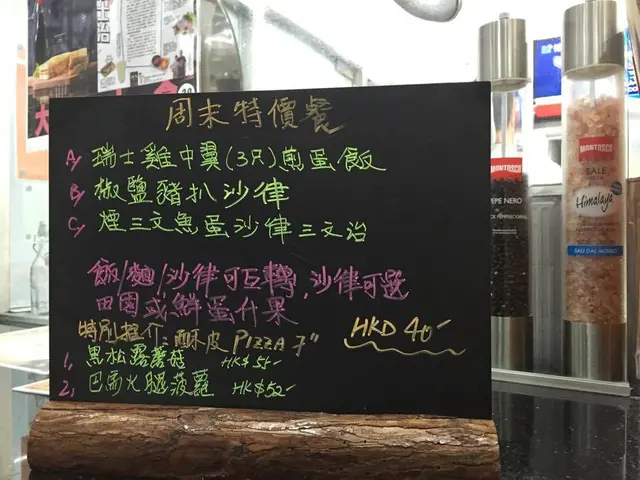 周末特價餐
A, 瑞士雞中翼(3只)煎蛋飯
B, 椒鹽豬扒沙律
C, 煙三文魚蛋沙律三文治
飯/麵/沙律可互轉,沙律可選
田園或鮮蛋什果
特別推介:酥皮 PIZZA 7"
HKD 40-
1, 黑松露蘑菇 HK$55-
2, 巴馬火腿菠蘿 HK$52-
MONTOSCO
PEPE NERO
MONTOSCO
SALE
Himalaya
SALI DAL MONDO